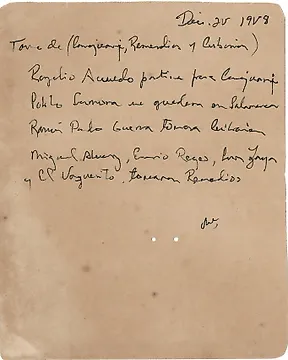 Dic. 20 1958
Toma de (Camajuaní, Remedios y Caibarién)
Rogelio Acevedo partirá para Camajuaní
Pablo se quedara en Salamanca
Ramón Pardo Guerra tomara Caibarién
Miguel Alvarez, Emerio Reyes,
y El Vaquerito, tomaran Remedios